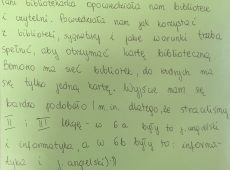 Pani bibliotekarka opowiedziała nam bibliotece
i czytelni. Powiedziała nam jak korzystać
z biblioteki, sygnatury i jakie warunki trzeba
spełnić, aby otrzymać kartę biblioteczną.
Pomimo ma sieć bibliotek, do których ma
się tylko jedną kartę. Wyjście nam się
bardzo podobało (m.in. dlatego, że straciliśmy
II i III lekcję - w 6a były to j. angielski
i informatyka, a w 6b były to: informa-
tyka i j. angielski):)